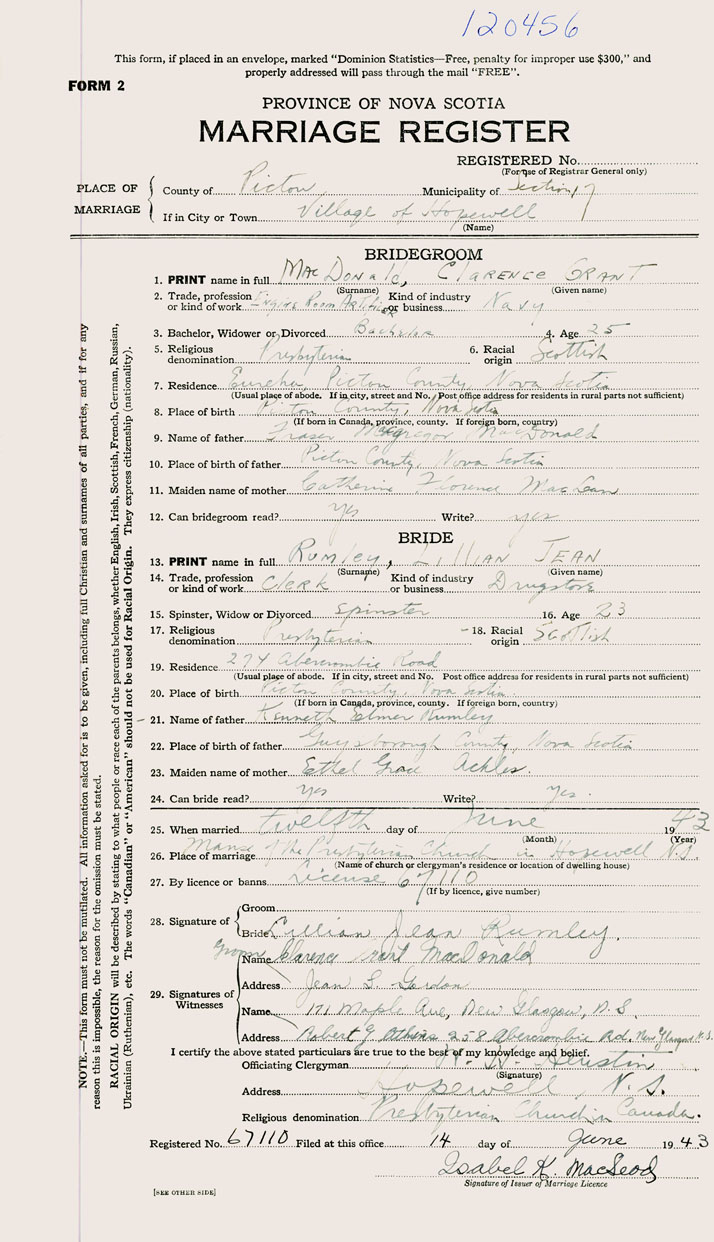 120456
This form, if placed in an envelope, marked "Dominion Statistics—Free, penalty for improper use $300," and
properly addressed will pass through the mail "FREE".
FORM 2
PROVINCE OF NOVA SCOTIA
MARRIAGE REGISTER
REGISTERED No.
(For use of Registrar General only)
PLACE OF MARRIAGE
County of Pictou Municipality of Section 7
If in City or Town Village of Hopewell
(Name)
BRIDEGROOM
1. PRINT name in full MacDonald, Clarence Grant
(Surname) (Given name)
2. Trade, profession or kind of work Engine Room Artificer Kind of industry or business Navy
3. Bachelor, Widower or Divorced Bachelor 4. Age 25
5. Religious denomination Presbyterian 6. Racial origin Scottish
7. Residence Eureka, Pictou County, Nova Scotia
(Usual place of abode. If in city, street and No. Post office address for residents in rural parts not sufficient)
8. Place of birth Pictou County, Nova Scotia
(If born in Canada, province, county. If foreign born, country)
9. Name of father Fraser McGregor MacDonald
10. Place of birth of father Pictou County, Nova Scotia
11. Maiden name of mother Catherine Florence MacLean
12. Can bridegroom read? yes Write? yes
BRIDE
13. PRINT name in full Rumley, Lillian Jean
(Surname) (Given name)
14. Trade, profession or kind of work Clerk Kind of industry or business Drugstore
15. Spinster, Widow or Divorced Spinster 16. Age 23
17. Religious denomination Presbyterian 18. Racial origin Scottish
19. Residence 274 Abercrombie Road
(Usual place of abode. If in city, street and No. Post office address for residents in rural parts not sufficient)
20. Place of birth Pictou County, Nova Scotia.
(If born in Canada, province, county. If foreign born, country)
21. Name of father Kenneth Elmer Rumley
22. Place of birth of father Guysborough County, Nova Scotia
23. Maiden name of mother Ethel Grace Ackles.
24. Can bride read? yes Write? yes.
25. When married twelfth day of June 1943
(Month) (Year)
26. Place of marriage Manse of the Presbyterian Church in Hopewell N.S.
(Name of church or clergyman's residence or location of dwelling house)
27. By licence or banns License 67110
(If by licence, give number)
28. Signature of Groom
Bride Lillian Jean Rumley.
Groom Name Clarence Grant MacDonald
29. Signatures of Witnesses
Address Jean L Gordon
Name 171 Maple Ave, New Glasgow, N.S.
Address Robert G. 258 Abercrombie Rd, New Glasgow N.S.
I certify the above stated particulars are true to the best of my knowledge and belief.
Officiating Clergyman
(Signature)
Address Hopewell, N.S.
Religious denomination Presbyterian Church in Canada.
Registered No. 67110 Filed at this office 14 day of June 1943
Isabel K. MacLeod
Signature of Issuer of Marriage Licence
[SEE OTHER SIDE]
NOTE.—This form must not be mutilated. All information asked for is to be given, including full Christian and surnames of all parties, and if for any
reason this is impossible, the reason for the omission must be stated.
RACIAL ORIGIN will be described by stating to what people or race each of the parents belongs, whether English, Irish, Scottish, French, German, Russian,
Ukrainian (Ruthenian), etc. The words "Canadian" or "American" should not be used for Racial Origin. They express citizenship (nationality).